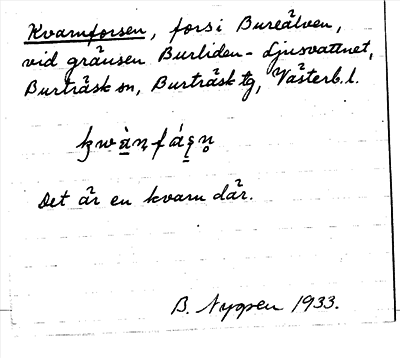 Kvarnforsen, fors i Bureälven,
vid gränsen Burliden - Ljusvattnet,
Burträsk sn, Burträsk tg, Västerb. l.
Det är en kvarn där.
B. Nygren 1933.